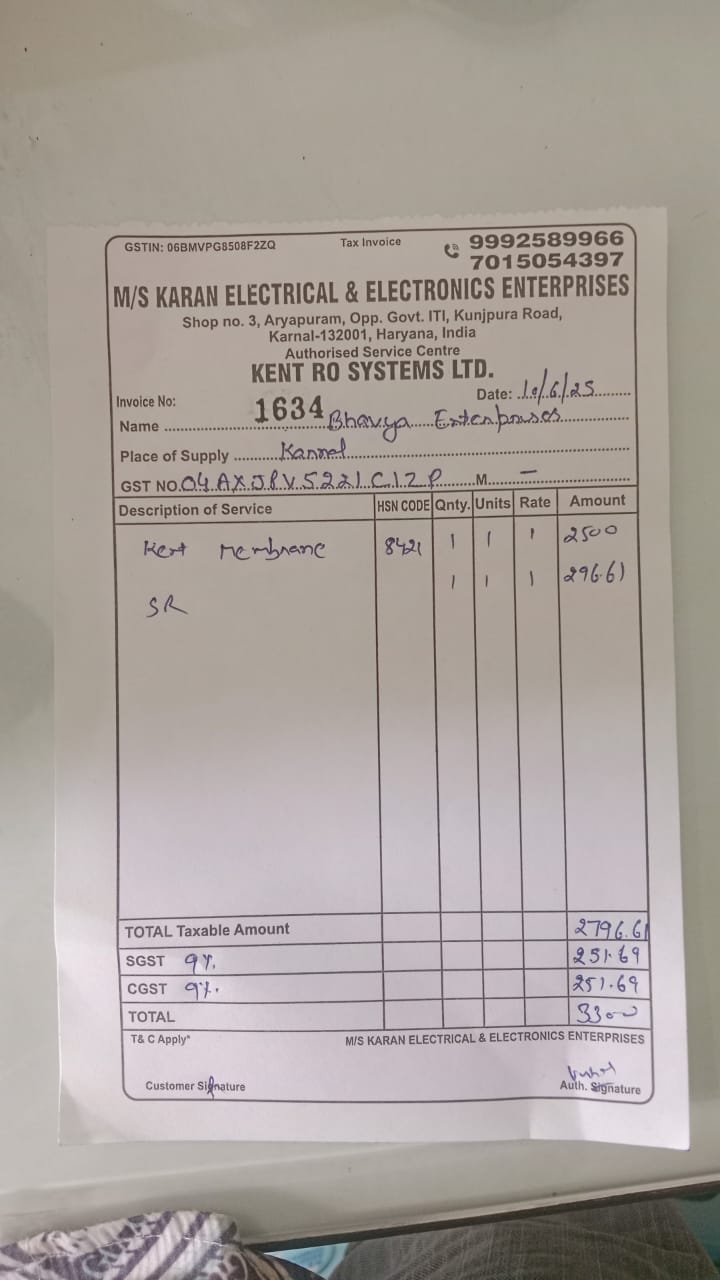 GSTIN: 06BMVPG8508F2ZQ Tax Invoice 9992589966
7015054397
M/S KARAN ELECTRICAL & ELECTRONICS ENTERPRISES
Shop no. 3, Aryapuram, Opp. Govt. ITI, Kunjpura Road,
Karnal-132001, Haryana, India
Authorised Service Centre
KENT RO SYSTEMS LTD.
Invoice No: 1634 Date: 10/6/25
Name Bhavya Enterprises
Place of Supply Karnal
GST NO. 04AXJPV5221C1ZP M. –
Description of Service HSN CODE Qnty. Units Rate Amount
Kent Membrane 8421 1 1 1 2500
SR 1 1 1 296.61
TOTAL Taxable Amount 2796.61
SGST 9% 251.69
CGST 9% 251.69
TOTAL 3300
T& C Apply* M/S KARAN ELECTRICAL & ELECTRONICS ENTERPRISES
Customer Signature Auth. Signature